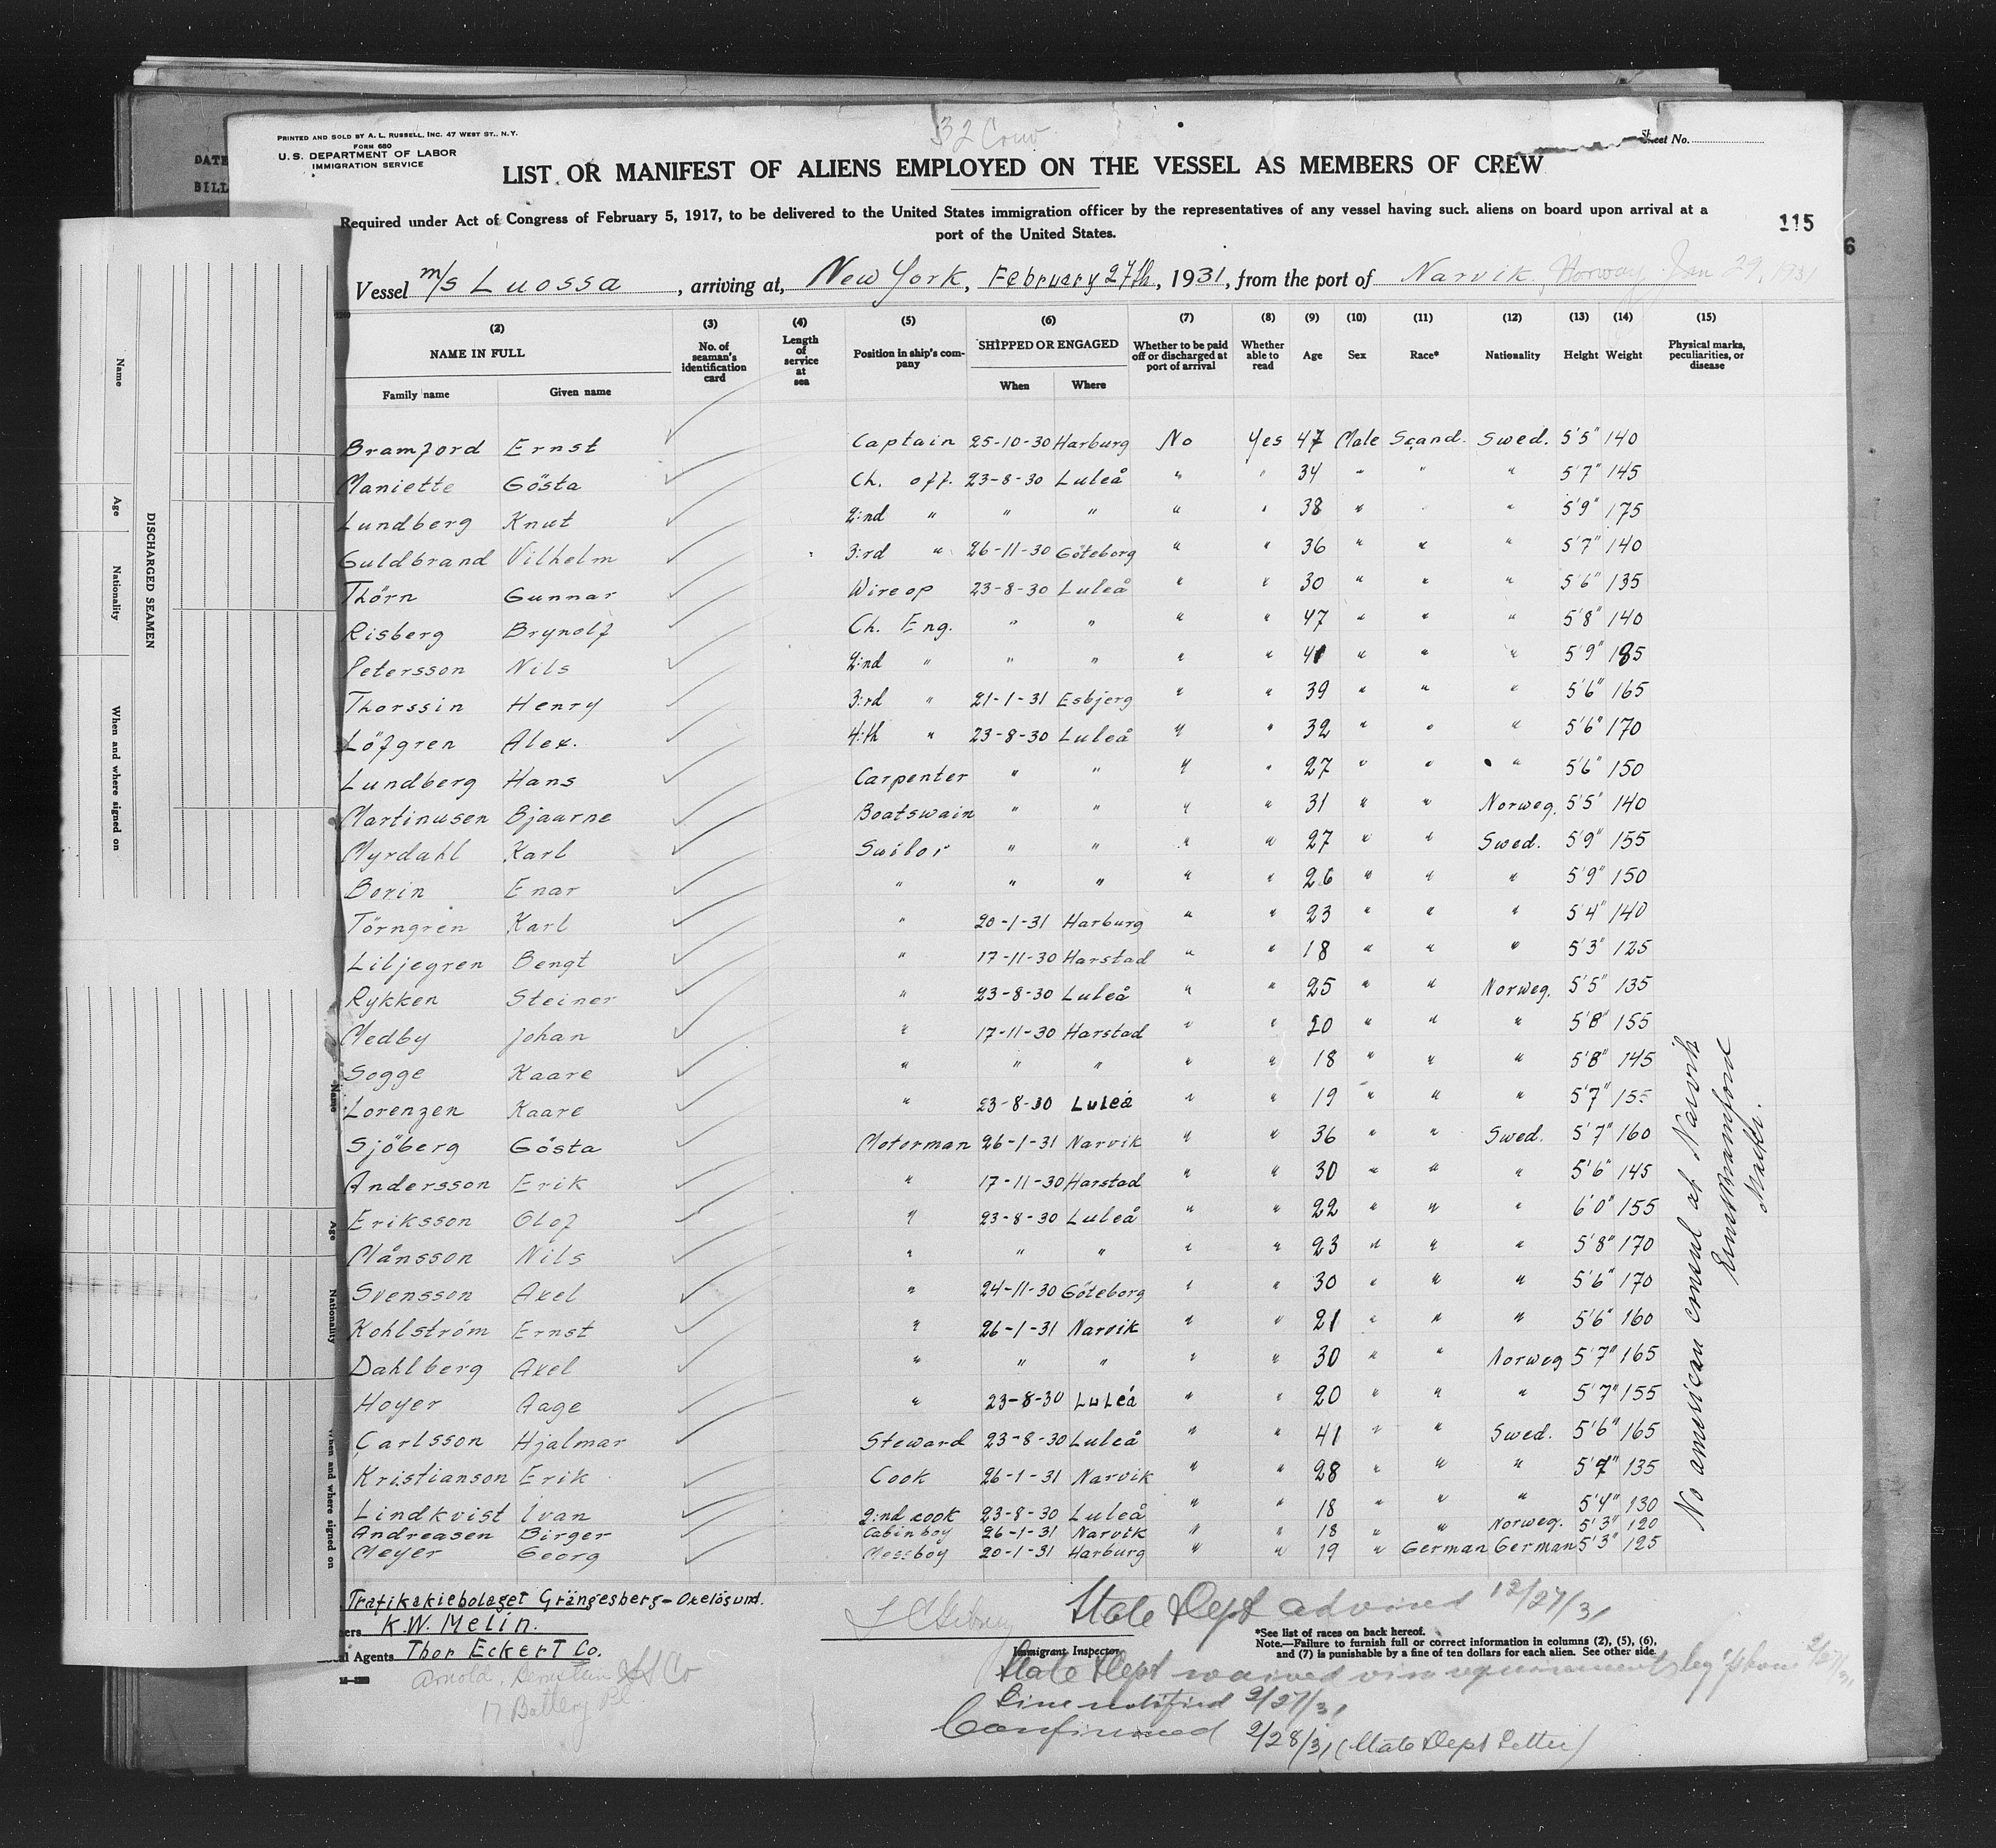 32 Crew
PRINTED AND SOLD BY A. L. RUSSELL, INC. 47 WEST ST., N. Y.
FORM 680
U. S. DEPARTMENT OF LABOR
IMMIGRATION SERVICE
Sheet No.
DATE
BILL
LIST OR MANIFEST OF ALIENS EMPLOYED ON THE VESSEL AS MEMBERS OF CREW
Required under Act of Congress of February 5, 1917, to be delivered to the United States immigration officer by the representatives of any vessel having such aliens on board upon arrival at a
port of the United States.
115
6
Vessel m/s Luossa, arriving at, New York, February 27th, 1931, from the port of Narvik, Norway, Jan 29, 1931
(2) (3) (4) (5) (6) (7) (8) (9) (10) (11) (12) (13) (14) (15)
NAME IN FULL No. of seaman's identification card Length of service at sea Position in ship's company SHIPPED OR ENGAGED Whether to be paid off or discharged at port of arrival Whether able to read Age Sex Race* Nationality Height Weight Physical marks, peculiarities, or disease
Family name Given name When Where
Bramford Ernst Captain 25-10-30 Harburg No Yes 47 Male Scand. Swed. 5'5" 140
Maniette Gösta Ch. off. 23-8-30 Luleå " " 34 " " " 5'7" 145
Lundberg Knut 2:nd " " " " " 38 " " " 5'9" 175
Guldbrand Vilhelm 3:rd " 26-11-30 Göteborg " " 36 " " " 5'7" 140
Thörn Gunnar Wireop 23-8-30 Luleå " " 30 " " " 5'6" 135
Risberg Brynolf Ch. Eng. " " " " 47 " " " 5'8" 140
Petersson Nils 2:nd " " " " " 41 " " " 5'9" 185
Thorssin Henry 3:rd " 21-1-31 Esbjerg " " 39 " " " 5'6" 165
Löfgren Alex. 4:th " 23-8-30 Luleå " " 32 " " " 5'6" 170
Lundberg Hans Carpenter " " " " 27 " " " 5'6" 150
Martinusen Bjaarne Boatswain " " " " 31 " " Norweg. 5'5" 140
Myrdahl Karl Sailor " " " " 27 " " Swed. 5'9" 155
Borin Enar " " " " " 26 " " " 5'9" 150
Törngren Karl " 20-1-31 Harburg " " 23 " " " 5'4" 140
Liljegren Bengt " 17-11-30 Harstad " " 18 " " " 5'3" 125
Rykken Steiner " 23-8-30 Luleå " " 25 " " Norweg. 5'5" 135
Medby Johan " 17-11-30 Harstad " " 20 " " " 5'8" 155
Sogge Kaare " " " " " 18 " " " 5'8" 145
Lorenzen Kaare " 23-8-30 Luleå " " 19 " " " 5'7" 155
Sjöberg Gösta Moterman 26-1-31 Narvik " " 36 " " Swed. 5'7" 160
Andersson Erik " 17-11-30 Harstad " " 30 " " " 5'6" 145
Eriksson Olof " 23-8-30 Luleå " " 22 " " " 6'0" 155
Månsson Nils " " " " " 23 " " " 5'8" 170
Svensson Axel " 24-11-30 Göteborg " " 30 " " " 5'6" 170
Kohlström Ernst " 26-1-31 Narvik " " 21 " " " 5'6" 160
Dahlberg Axel " " " " " 30 " " Norweg 5'7" 165
Hoyer Aage " 23-8-30 Luleå " " 20 " " " 5'7" 155
Carlsson Hjalmar Steward 23-8-30 Luleå " " 41 " " Swed. 5'6" 165
Kristianson Erik Cook 26-1-31 Narvik " " 28 " " " 5'7" 135
Lindkvist Ivan 2:nd cook 23-8-30 Luleå " " 18 " " " 5'4" 130
Andreasen Birger Cabinboy 26-1-31 Narvik " " 18 " " Norweg. 5'3" 120
Meyer Georg Messboy 20-1-31 Harburg " " 19 " German German 5'3" 125
No american consul at Narvik
Ernst Bramford
Master.
Name
Age
Nationality
When and where signed on
DISCHARGED SEAMEN
Name
Age
Nationality
When and where signed on
Trafikakiebolaget Grängesberg-Oxelösund.
ers K.W. Melin.
l Agents Thor Eckert Co.
Arnold, Bernstein SS Co
17 Battery Pl.
Immigrant Inspector
State Dept advised 12/27/31
*See list of races on back hereof.
Note.—Failure to furnish full or correct information in columns (2), (5), (6),
and (7) is punishable by a fine of ten dollars for each alien. See other side.
State Dept waived visa requirements by 'phone 2/27/31
Line notified 2/27/31
Confirmed 2/28/31 (State Dept Letter)